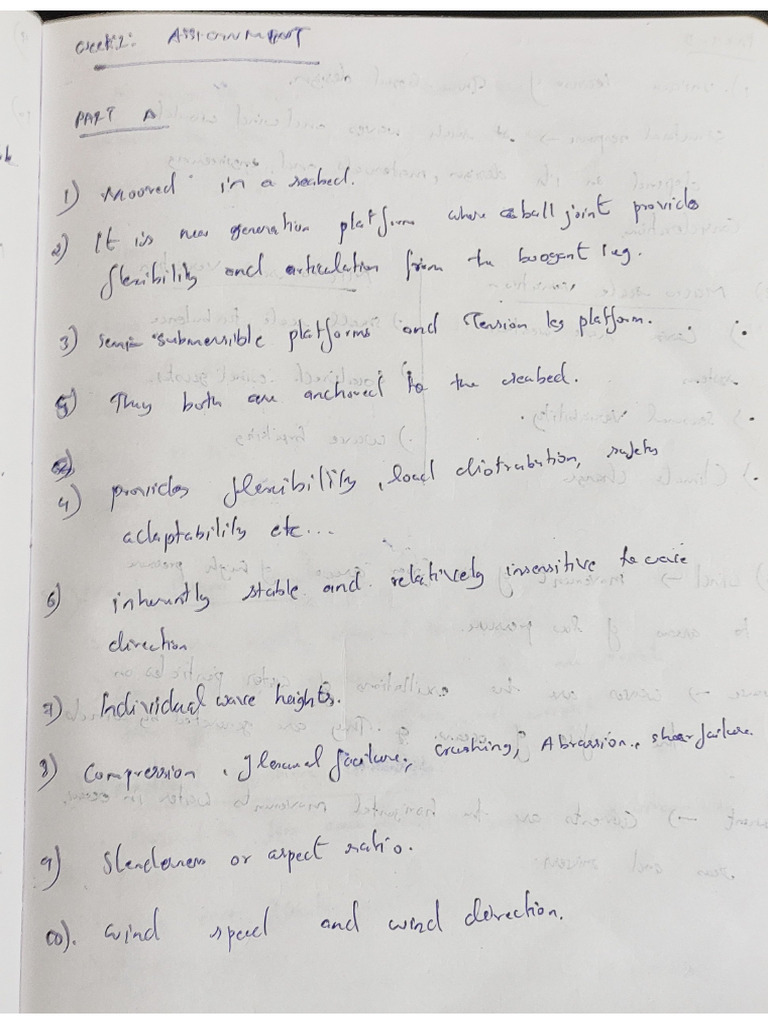 Week 2: ASSIGNMENT
PART A
1) Moored in a seabed.
2) It is new generation platform where a ball joint provides
flexibility and articulation from the buoyant leg.
3) Semi-submersible platforms and Tension leg platform.
5) They both are anchored to the seabed.
4) provides flexibility, load distrabution, safety
adaptability etc...
6) inheruntly stable and relatively insensitive to wave
direction
7) Individual wave heights.
8) Compression, flexural failure, crushing, Abrassion, shear failure.
9) Slenderness or aspect ratio.
10). wind speed and wind direction.